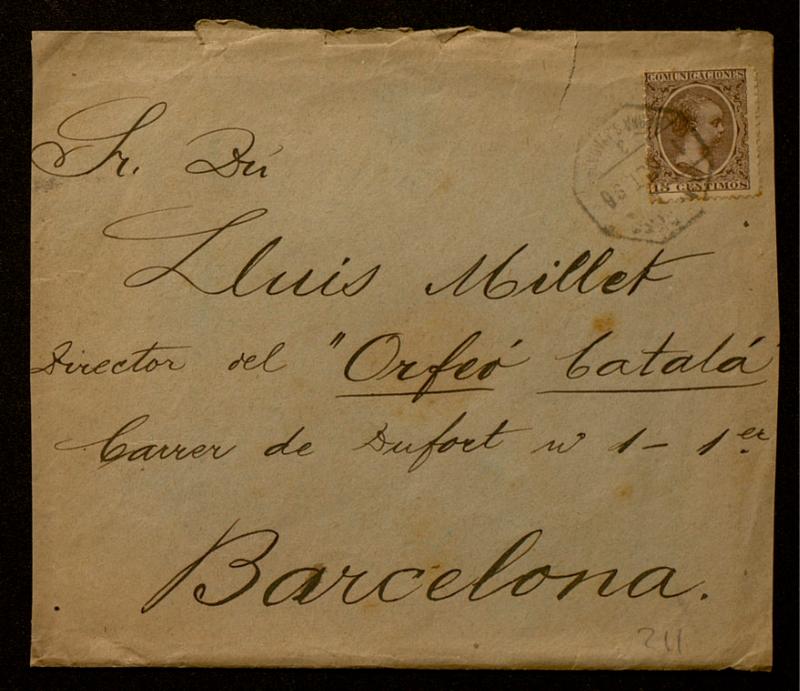 COMUNICACIONES
15 CENTIMOS
Sr. Dn
Lluis Millet
Director del "Orfeó Catalá"
Carrer de Dufort nº 1 - 1er
Barcelona.
211